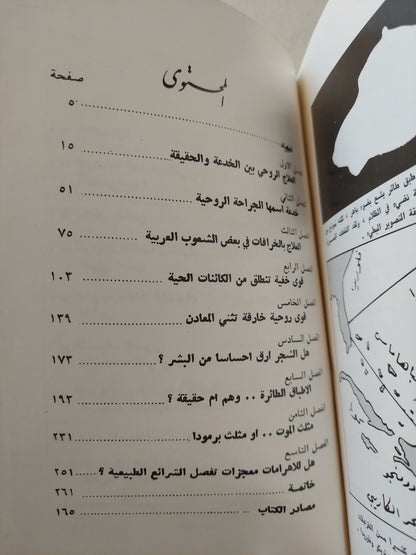 المحتوى
صفحة
٥
الفصل الاول
العلاج الروحي بين الخدعة والحقيقة ١٥
الفصل الثاني
خدعة اسمها الجراحة الروحية ٥١
الفصل الثالث
العلاج بالخرافات في بعض الشعوب العربية ٧٥
الفصل الرابع
قوى خفية تنطلق من الكائنات الحية ١٠٣
الفصل الخامس
قوى روحية خارقة تثني المعادن ١٣٩
الفصل السادس
هل الشجر ارق احساسا من البشر ؟ ١٧٣
الفصل السابع
الاطباق الطائرة .. وهم ام حقيقة ؟ ١٩٣
الفصل الثامن
مثلث الموت .. او مثلث برمودا ٢٣١
الفصل التاسع
هل للاهرامات معجزات تفصل الشرائع الطبيعية ؟ ٢٥١
خاتمة ٢٦١
مصادر الكتاب ١٦٥
طبق طائر يشع بضوء